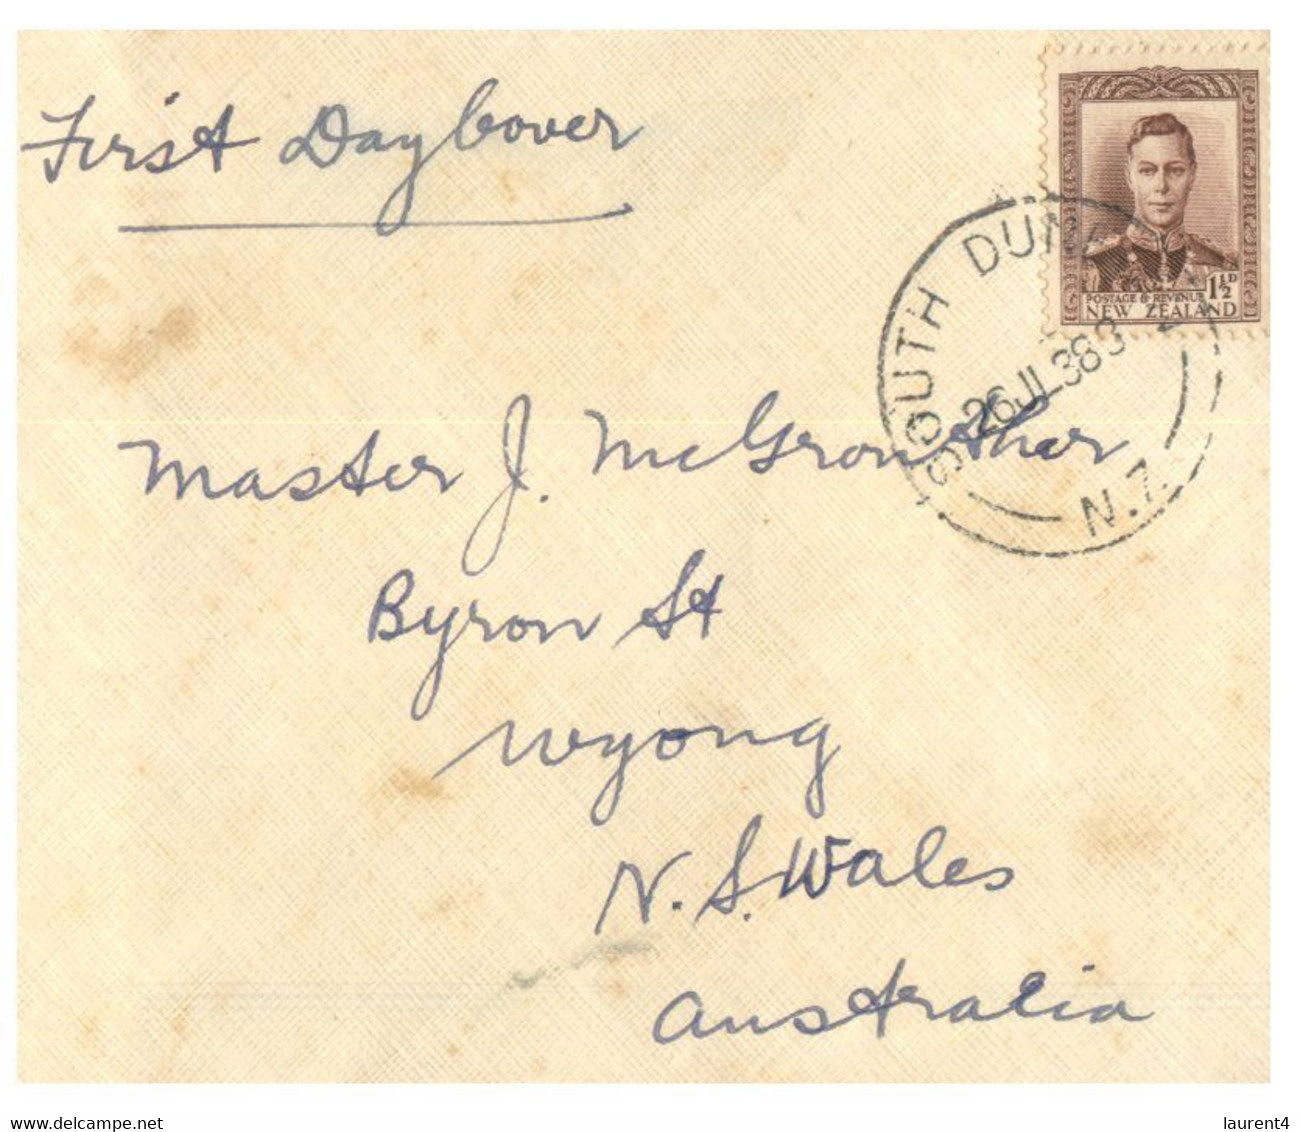 First Day Cover
POSTAGE & REVENUE 1½D
NEW ZEALAND
SOUTH DUN
26 JL 38
N.Z.
Master J. McGronther
Byron St
Wyong
N. S. Wales
Australia
www.delcampe.net
laurent4